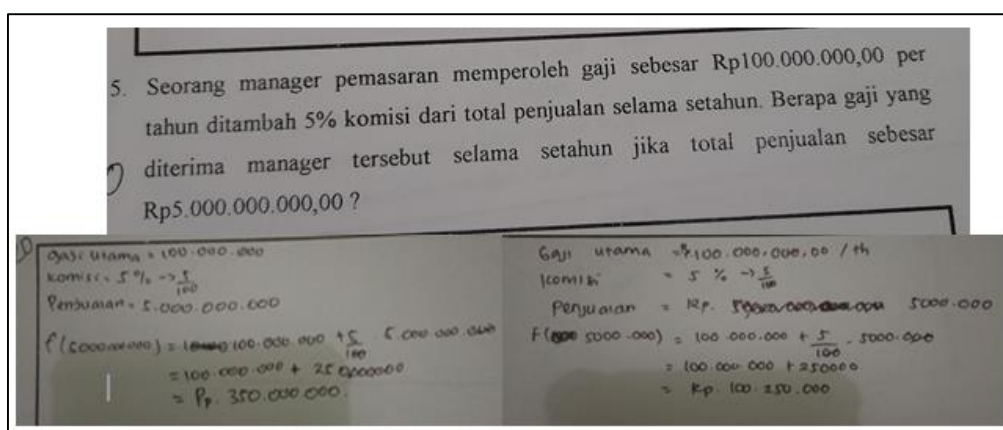 5. Seorang manager pemasaran memperoleh gaji sebesar Rp100.000.000,00 per
tahun ditambah 5% komisi dari total penjualan selama setahun. Berapa gaji yang
diterima manager tersebut selama setahun jika total penjualan sebesar
Rp5.000.000.000,00 ?
Gaji utama = 100.000.000
komisi = 5 % -> 5/100
Penjualan = 5.000.000.000
= 100.000.000 + 250000000
= Rp. 350.000.000.
Gaji utama = Rp 100.000.000,00 / th
komisi = 5 % -> 5/100
Penjualan = Rp. 5000.000
F( 5000.000) = 100.000.000 + 5/100 . 5000.000
= 100.000.000 + 250000
= Rp. 100.250.000